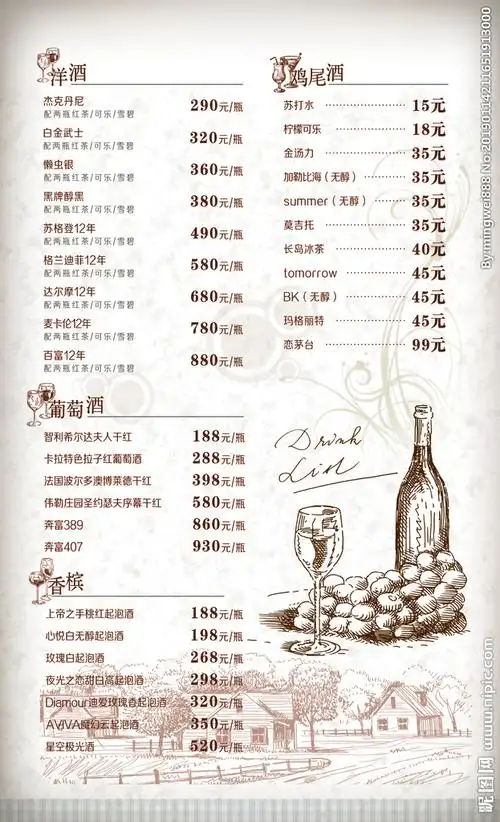 洋酒
杰克丹尼 290元/瓶
配两瓶红茶/可乐/雪碧
白金武士 320元/瓶
配两瓶红茶/可乐/雪碧
懒虫银 360元/瓶
配两瓶红茶/可乐/雪碧
黑牌醇黑 380元/瓶
配两瓶红茶/可乐/雪碧
苏格登12年 490元/瓶
配两瓶红茶/可乐/雪碧
格兰迪菲12年 580元/瓶
配两瓶红茶/可乐/雪碧
达尔摩12年 680元/瓶
配两瓶红茶/可乐/雪碧
麦卡伦12年 780元/瓶
配两瓶红茶/可乐/雪碧
百富12年 880元/瓶
配两瓶红茶/可乐/雪碧
葡萄酒
智利希尔达夫人干红 188元/瓶
卡拉特色拉子红葡萄酒 288元/瓶
法国波尔多澳博莱德干红 398元/瓶
伟勒庄园圣约瑟夫序幕干红 580元/瓶
奔富389 860元/瓶
奔富407 930元/瓶
香槟
上帝之手桃红起泡酒 188元/瓶
心悦白无醇起泡酒 198元/瓶
玫瑰白起泡酒 268元/瓶
夜光之恋甜白高起泡酒 298元/瓶
Diamour迪爱玫瑰香起泡酒 320元/瓶
AVIVA魔幻云起泡酒 350元/瓶
星空极光酒 520元/瓶
鸡尾酒
苏打水 15元
柠檬可乐 18元
金汤力 35元
加勒比海（无醇） 35元
summer（无醇） 35元
莫吉托 35元
长岛冰茶 40元
tomorrow 45元
BK（无醇） 45元
玛格丽特 45元
恋茅台 99元
Drink
List
By:mingwei888 No:20190114211651913000
昵图网 www.nipic.com